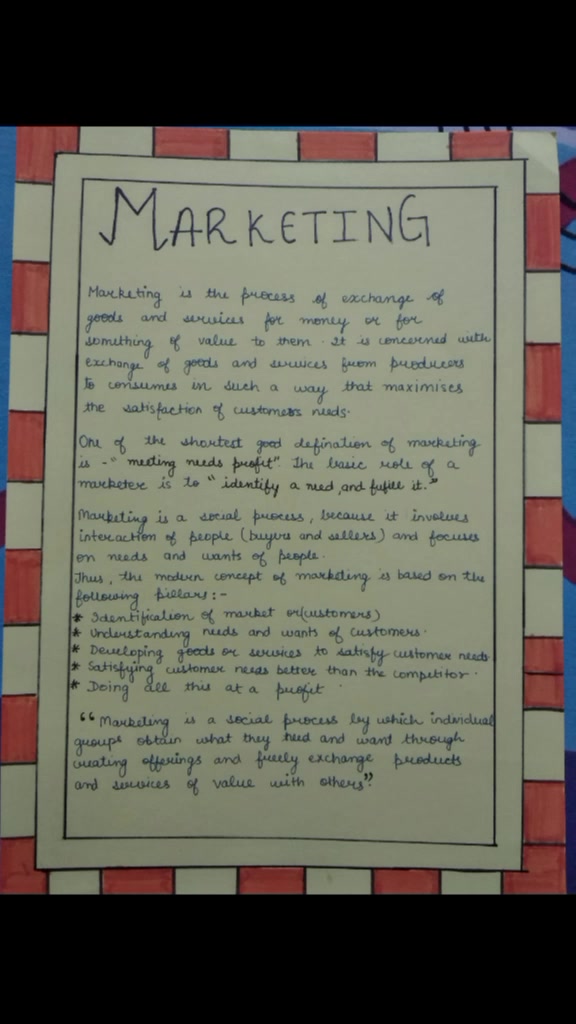 MARKETING
Marketing is the process of exchange of
goods and services for money or for
something of value to them. It is concerned with
exchange of goods and services from producers
to consumes in such a way that maximises
the satisfaction of customers needs.
One of the shortest good defination of marketing
is - " meeting needs profit". The basic role of a
marketer is to " identify a need, and fulfill it."
Marketing is a social process, because it involves
interaction of people (buyers and sellers) and focuses
on needs and wants of people.
Thus, the modern concept of marketing is based on the
following pillars :-
* Identification of market or(customers)
* Understanding needs and wants of customers.
* Developing goods or services to satisfy customer needs
* Satisfying customer needs better than the competitor.
* Doing all this at a profit.
“Marketing is a social process by which individual
groups obtain what they need and want through
creating offerings and freely exchange products
and services of value with others”.